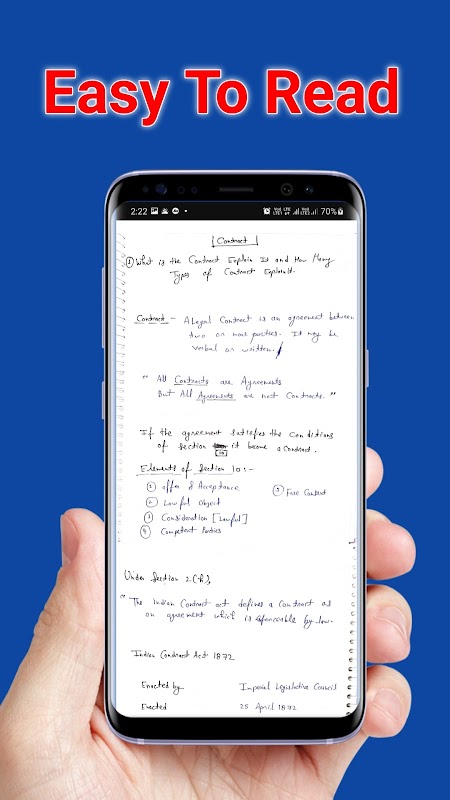 Easy To Read
2:22 70%
Contract
① What is the Contract Explain It and How Many
Types of Contract Explain it.
Contract :- A Legal Contract is an agreement between
two or more parties. It may be
verbal or written.
" All Contracts are Agreements
But All Agreements are not Contracts. "
If the agreement satisfies the conditions
of Section 10 it become a Contract.
Elements of Section 10 :-
① offer & Acceptance
⑤ Free Consent
② Lawful Object
③ Consideration [Lawful]
④ Competent Parties
Under Section 2(h),
" The Indian Contract act defines a Contract as
an agreement which is enforceable by law.
Indian Contract Act 1872
Enacted by Imperial Legislative Council
Enacted 25 April 1872